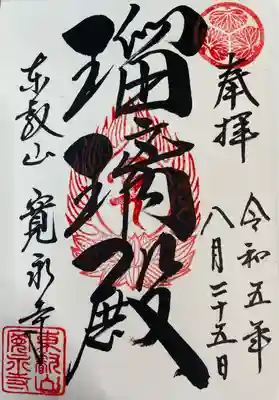 奉拝
令和五年
八月二十五日
瑠璃殿
東叡山 寛永寺
東叡山
寛永寺